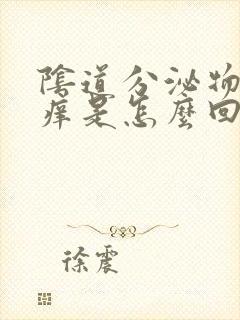 陰道分泌物
痒是怎麼回
徐震